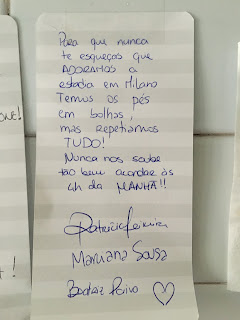 Para que nunca
te esqueças que
ADORAMOS a
estadia em Milano
Temos os pés
em bolhas,
mas repetiamos
TUDO!
Nunca nos soube
tão bem acordar às
4h da MANHÃ!!
Patrícia
Mariana Sousa
Beatriz Paiva ♡
!